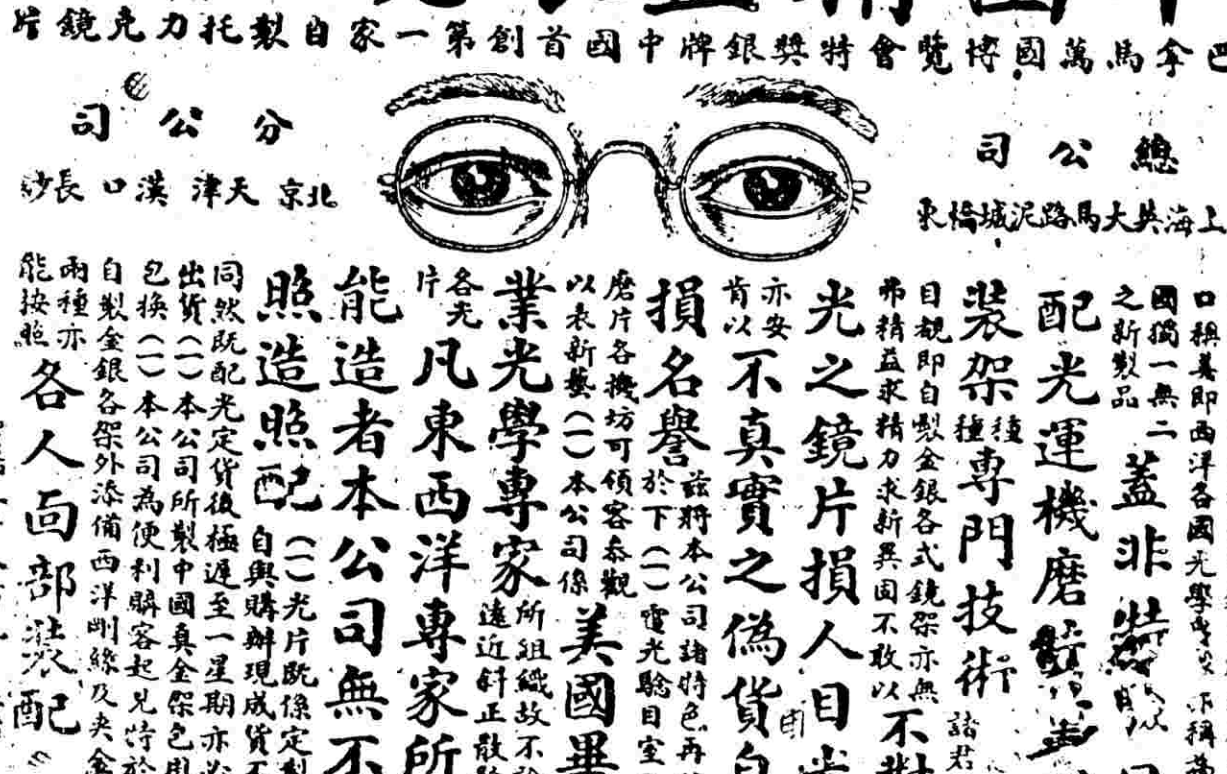 巴拿馬萬國博覽會特奬銀牌中國首創第一家自製托力克鏡片
總公司
上海英大馬路泥城橋東
分公司
北京 天津 漢口 長沙
口稱善即西洋各國光學
國獨一無二
之新製品
蓋非
配光運機磨
裝架種種專門技術
諸君
目覩即自製金銀各式鏡架亦無
弗精益求精力求新異固不敢以
不對
光之鏡片損人目光
亦安
肯以
不真實之偽貨自
損名譽
茲將本公司諸特色再
於下（一）電光驗目室
磨片各機坊可領客叅觀
以表新藝（一）本公司係
美國畢
業光學專家
所組織故不論
遠近斜正散
各光
片
凡東西洋專家所
能造者本公司無不
照造照配
（一）光片既係定製
自與購辦現成貨不
同然既配光定貨後極遲至一星期亦必
出貨（一）本公司所製中國真金架包用
包換（一）本公司為便利購客起見特於
自製金銀各架外添備西洋剛絲及夾金
兩種亦
能按照
各人面部裝配